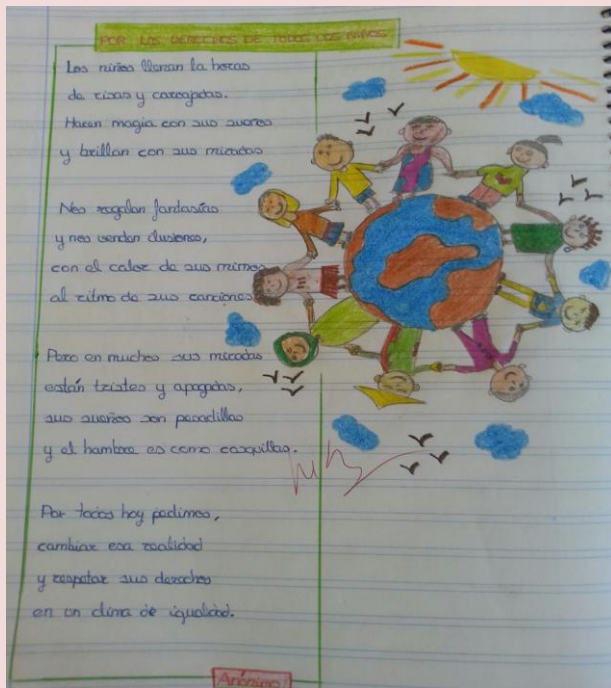 POR LOS DERECHOS DE TODOS LOS NIÑOS
Los niños llenan la horas
de risas y carcajadas.
Hacen magia con sus sueños
y brillan con sus miradas
Nos regalan fantasías
y nos venden ilusiones,
con el calor de sus mimos
al ritmo de sus canciones.
Pero en muchos sus miradas
están tristes y apagadas,
sus sueños son pesadillas
y el hambre es como cosquillas.
Por todos hoy pedimos,
cambiar esa realidad
y respetar sus derechos
en un clima de igualdad.
Anónimo